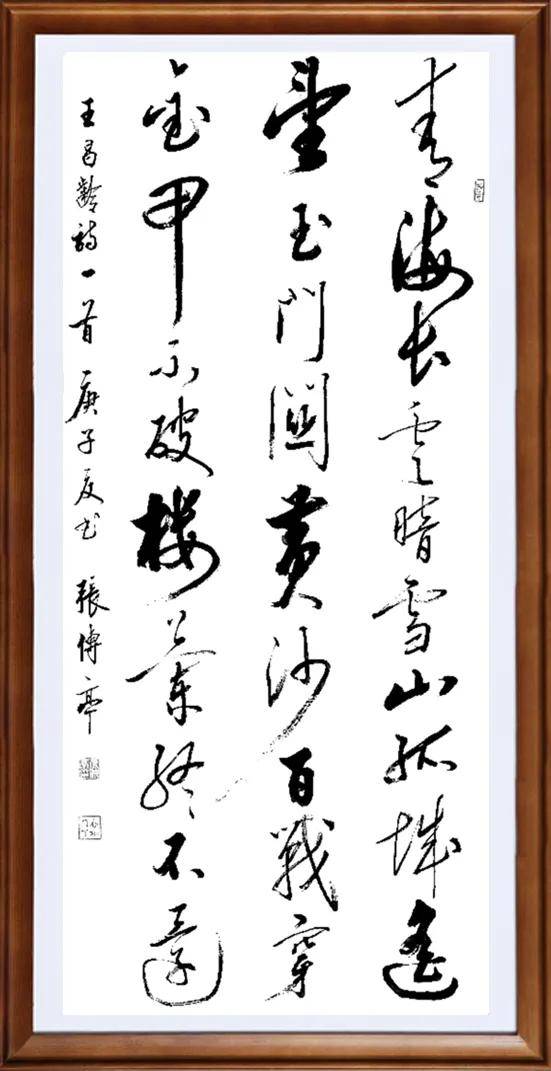 青海長雲暗雪山孤城遙
望玉門關黄沙百戰穿
金甲不破楼蘭終不還
王昌齡詩一首 庚子夏书 張傳亭